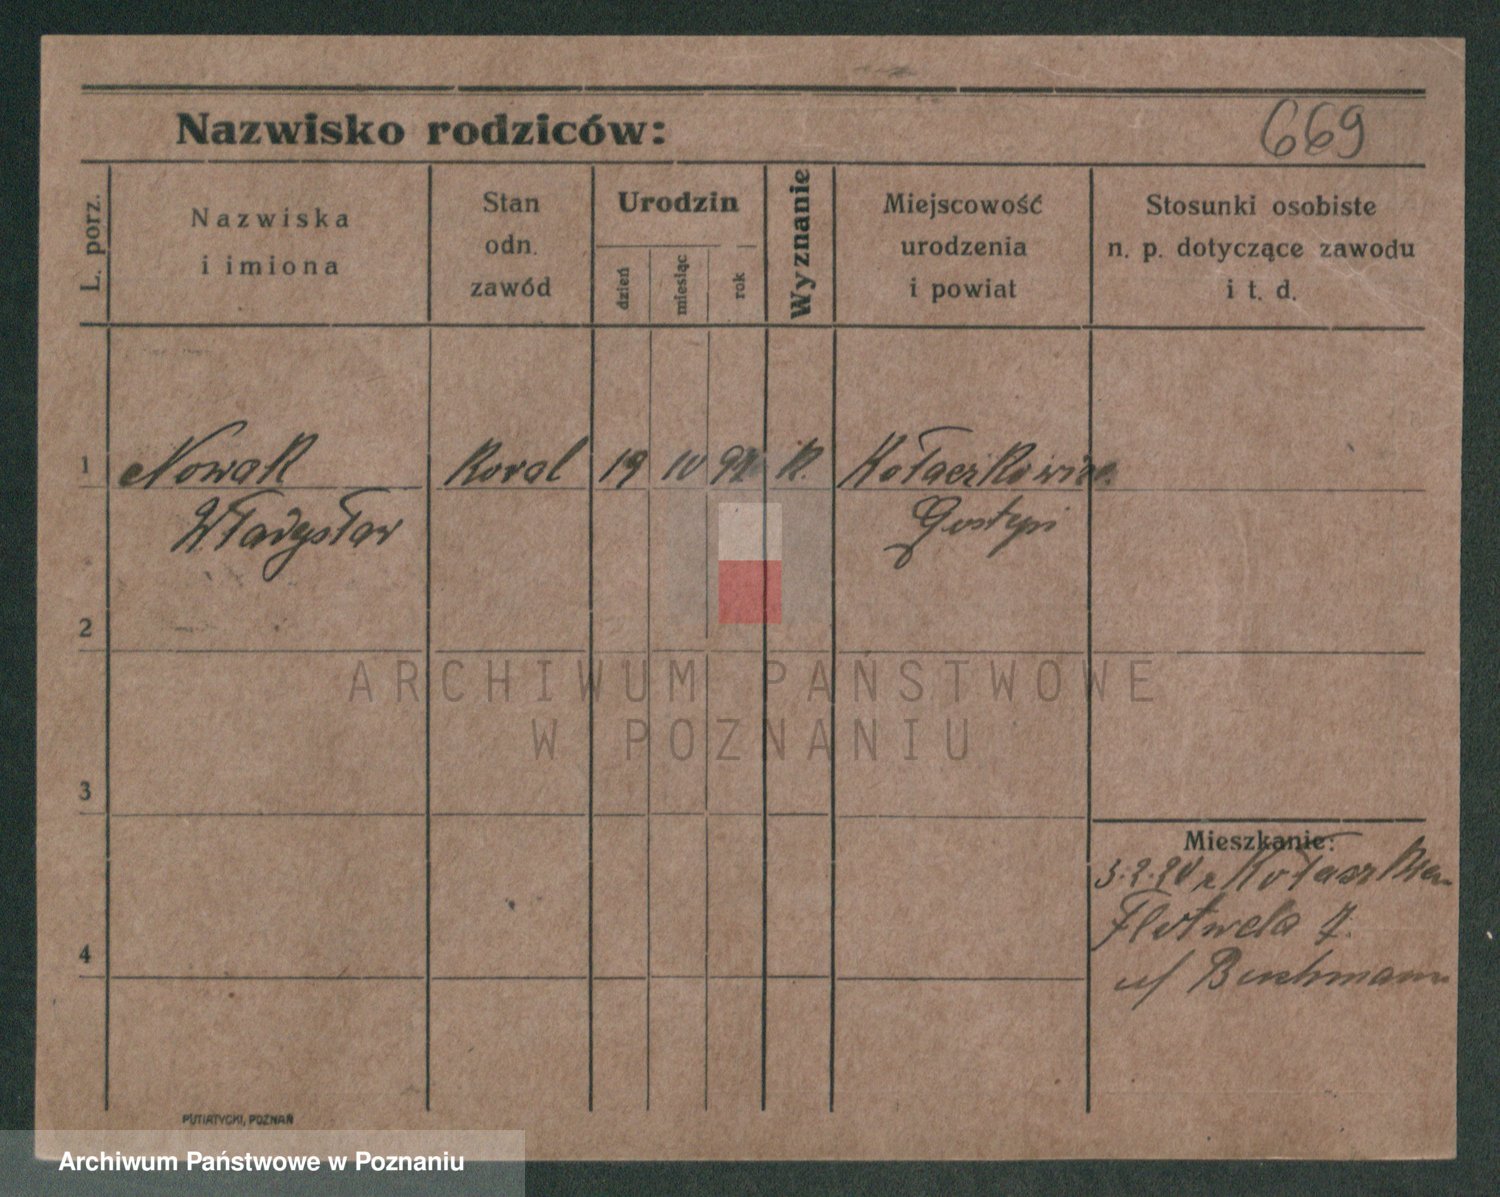 669
Nazwisko rodziców:
L. porz.
Nazwiska
i imiona
Stan
odn.
zawód
Urodzin
dzień
miesiąc
rok
Wyznanie
Miejscowość
urodzenia
i powiat
Stosunki osobiste
n. p. dotyczące zawodu
i t. d.
1 Nowak Koval 19 10 k. Kołaczkowice
Władysław Gostyń
2
ARCHIWUM PAŃSTWOWE
W POZNANIU
3
Mieszkanie:
3.2.20 z
7.
u/
4
PUTIATYCKI, POZNAŃ
Archiwum Państwowe w Poznaniu